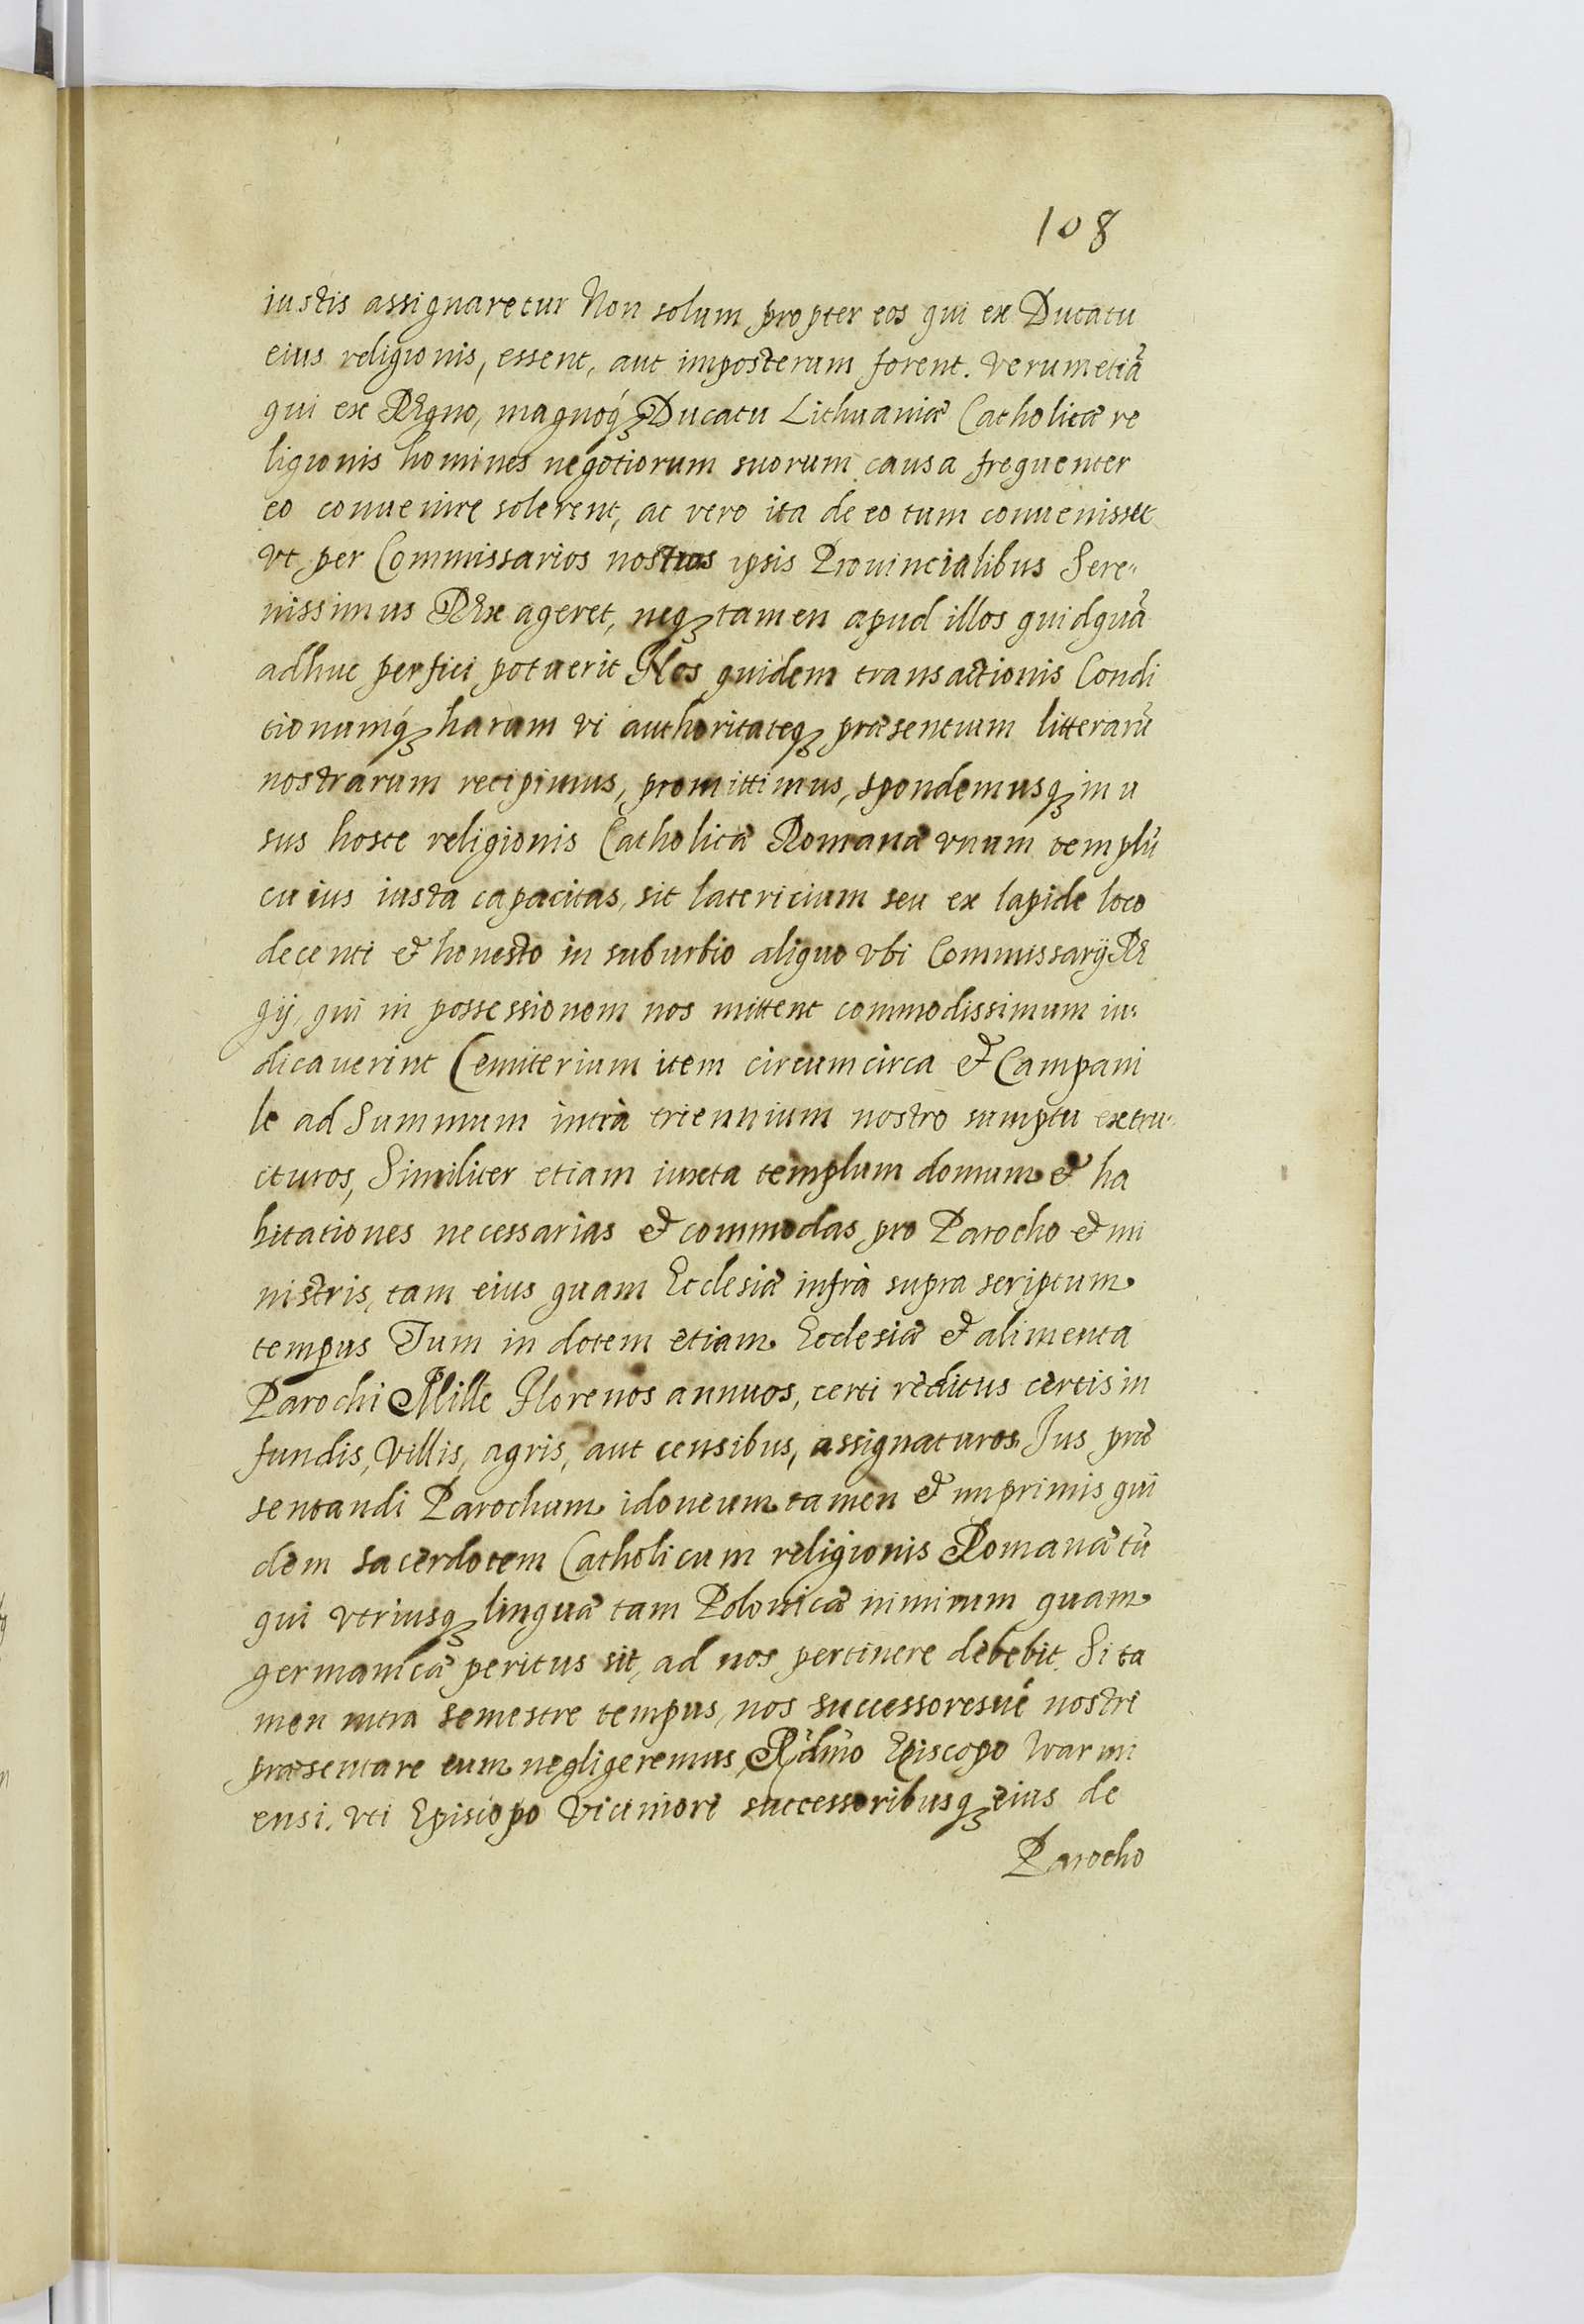 108
iustis assignaretur Non solum propter eos qui ex Ducatu
eius religionis, essent, aut imposterum forent. verumetiā
qui ex Regno, magnoq́ꝫ Ducatu Lithuaniæ Catholicæ re
ligionis homines negotiorum suorum causa frequenter
eo conuenire solerent, ac vero ita de eo tum conuenisset
vt per Commissarios nostros ipsis Prouincialibus Sere„
nissimus Rex ageret, neqꝫ tamen apud illos quidquā
adhuc perfici potuerit Nos quidem transactionis Condi
tionumq́ꝫ harum vi authoritateqꝫ præsentium litterarū
nostrarum recipimus, promittimus, spondemusqꝫ in u
sus hosce religionis Catholicæ Romanæ vnum templū
cuius iusta capacitas, sit latericium seu ex lapide loco
decenti et honesto in suburbio aliquo vbi Commissarij Re
gij, qui in possessionem nos mittent commodissimum iu„
dicauerint Cemiterium item circumcirca et Campani
le ad Summum intrà triennium nostro sumptu extru„
cturos, Similiter etiam iuxta templum domum et ha
bitationes necessarias et commodas pro Parocho et mi
nistris, tam eius quam Ecclesiæ infrà supra scriptum
tempus Tum in dotem etiam Ecclesiæ et alimenta
Parochi Mille Florenos annuos, certi reditus certis in
fundis, villis, agris, aut censibus, assignaturos. Jus præ
sentandi Parochum idoneum tamen et imprimis qui
dem sacerdotem Catholicum religionis Romanæ tū
qui vtriusqꝫ linguæ tam Polonicæ nimirum quam
germanicæ peritus sit, ad nos pertinere debebit. Si ta
men intra semestre tempus, nos successoresué nostri
præsentare eum negligeremus, Rdmo Episcopo Warmi
ensi. vti Episcopo viciniori successoribusqꝫ eius de
Parocho